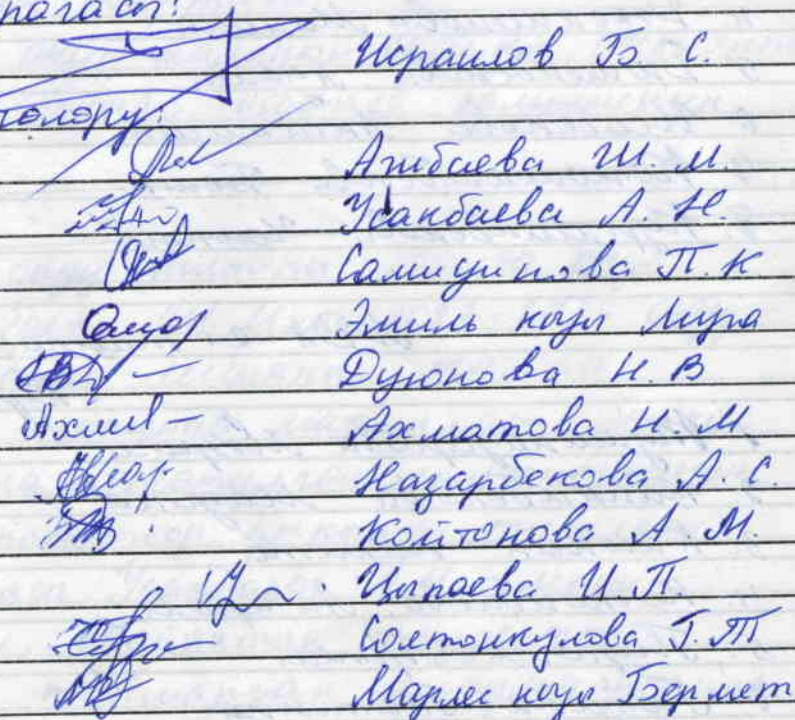 Исраилов Б. С.
Ажибаева Ш. М.
Усакбаева А. Н.
Самидинова П. К
Эмиль кызы Мира
Дуюнова Н. В
Ахматова Н. М
Назарбекова А. С.
Койтонова А М.
Цыпаева И. П
Солтонкулова Г. Т
Марлес кызы Бермет